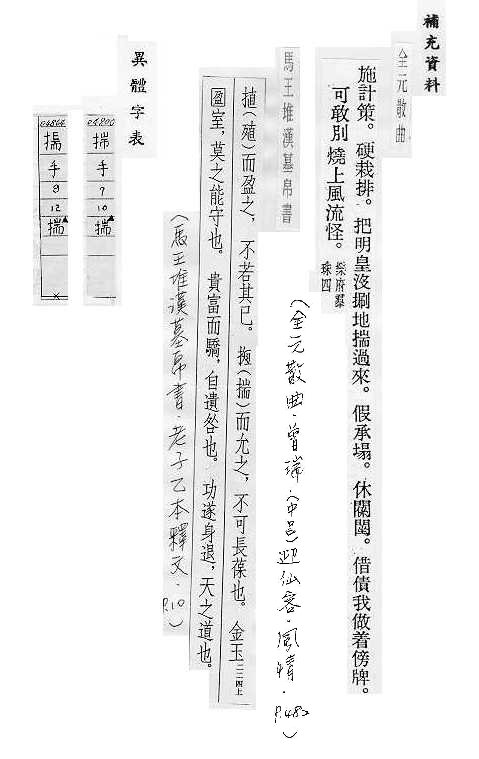 補充資料
全元散曲
施計策。硬栽排。把明皇沒揣地揣過來。假承塌。休闌閨。借債我做着傍牌。
可敢別燒上風流怪。樂府羣珠四
(全元散曲.曾瑞.〈中呂〉迎仙客.風情.P.482)
馬王堆漢墓帛書
揰(殖)而盈之，不若其已。㧖(揣)而允之，不可長葆也。金玉二二四上
盈室，莫之能守也。貴富而驕，自遺咎也。功遂身退，天之道也。
(馬王堆漢墓帛書.老子乙本釋文.P.10)
異體字表
04800
揣
手
9
10
揣
04864
搗
手
9
12
揣